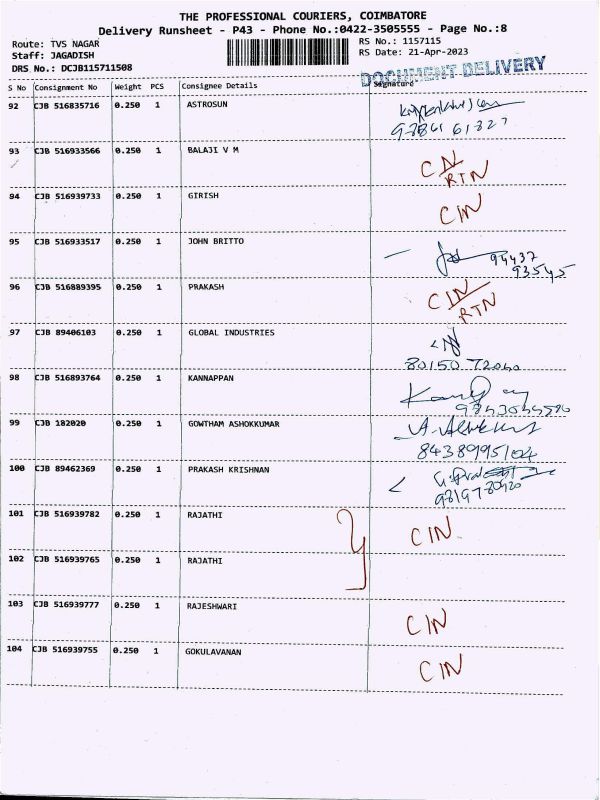 THE PROFESSIONAL COURIERS, COIMBATORE
Delivery Runsheet - P43 - Phone No.:0422-3505555 - Page No.:8
Route: TVS NAGAR
RS No.: 1157115
Staff: JAGADISH
RS Date: 21-Apr-2023
DRS No.: DCJB115711508
DOCUMENT DELIVERY
S No Consignment No Weight PCS Consignee Details Signature
92 CJB 516835716 0.250 1 ASTROSUN
93 CJB 516933566 0.250 1 BALAJI V M CIN
RTN
94 CJB 516939733 0.250 1 GIRISH CIN
95 CJB 516933517 0.250 1 JOHN BRITTO 94437
93545
96 CJB 516889395 0.250 1 PRAKASH CIN
RTN
97 CJB 89406103 0.250 1 GLOBAL INDUSTRIES
80150 72040
98 CJB 516893764 0.250 1 KANNAPPAN
99 CJB 182020 0.250 1 GOWTHAM ASHOKKUMAR
8438995104
100 CJB 89462369 0.250 1 PRAKASH KRISHNAN
101 CJB 516939782 0.250 1 RAJATHI CIN
102 CJB 516939765 0.250 1 RAJATHI
103 CJB 516939777 0.250 1 RAJESHWARI CIN
104 CJB 516939755 0.250 1 GOKULAVANAN CIN